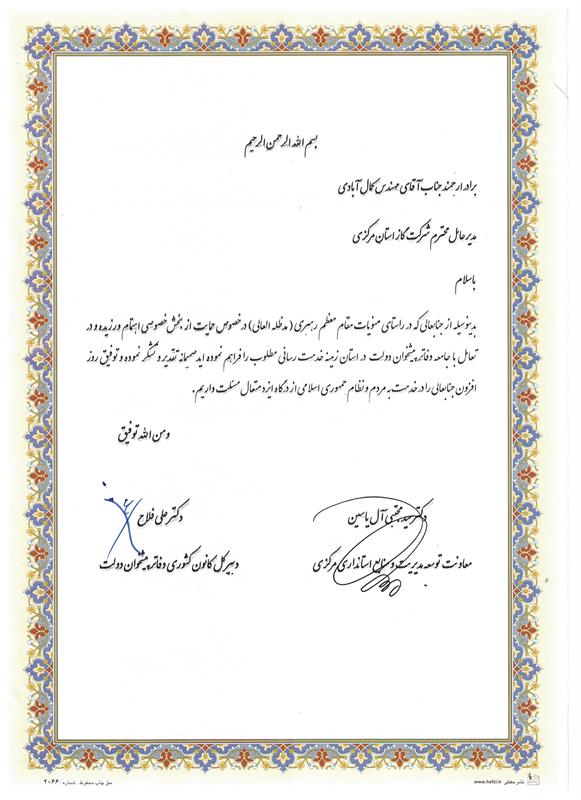 بسم الله الرحمن الرحیم
برادر ارجمند جناب آقای مهندس کمال آبادی
مدیرعامل محترم شرکت گاز استان مرکزی
باسلام
بدینوسیله از جنابعالی که در راستای منویات مقام معظم رهبری (مدظله العالی) در خصوص حمایت از بخش خصوصی اهتمام ورزیده و در
تعامل با جامعه دفاتر پیشخوان دولت در استان زمینه خدمت رسانی مطلوب را فراهم نموده اید صمیمانه تقدیر و تشکر نموده و توفیق روز
افزون جنابعالی را در خدمت به مردم و نظام جمهوری اسلامی از درگاه ایزد متعال مسئلت داریم.
ومن الله توفیق
دکتر سید مجتبی آل یاسین
معاونت توسعه مدیریت و منابع استانداری مرکزی
دکتر علی فلاح
دبیر کل کانون کشوری دفاتر پیشخوان دولت
نشر حفظی www.hefzi.ir
حق چاپ محفوظ. شماره: ۲۰۶۶